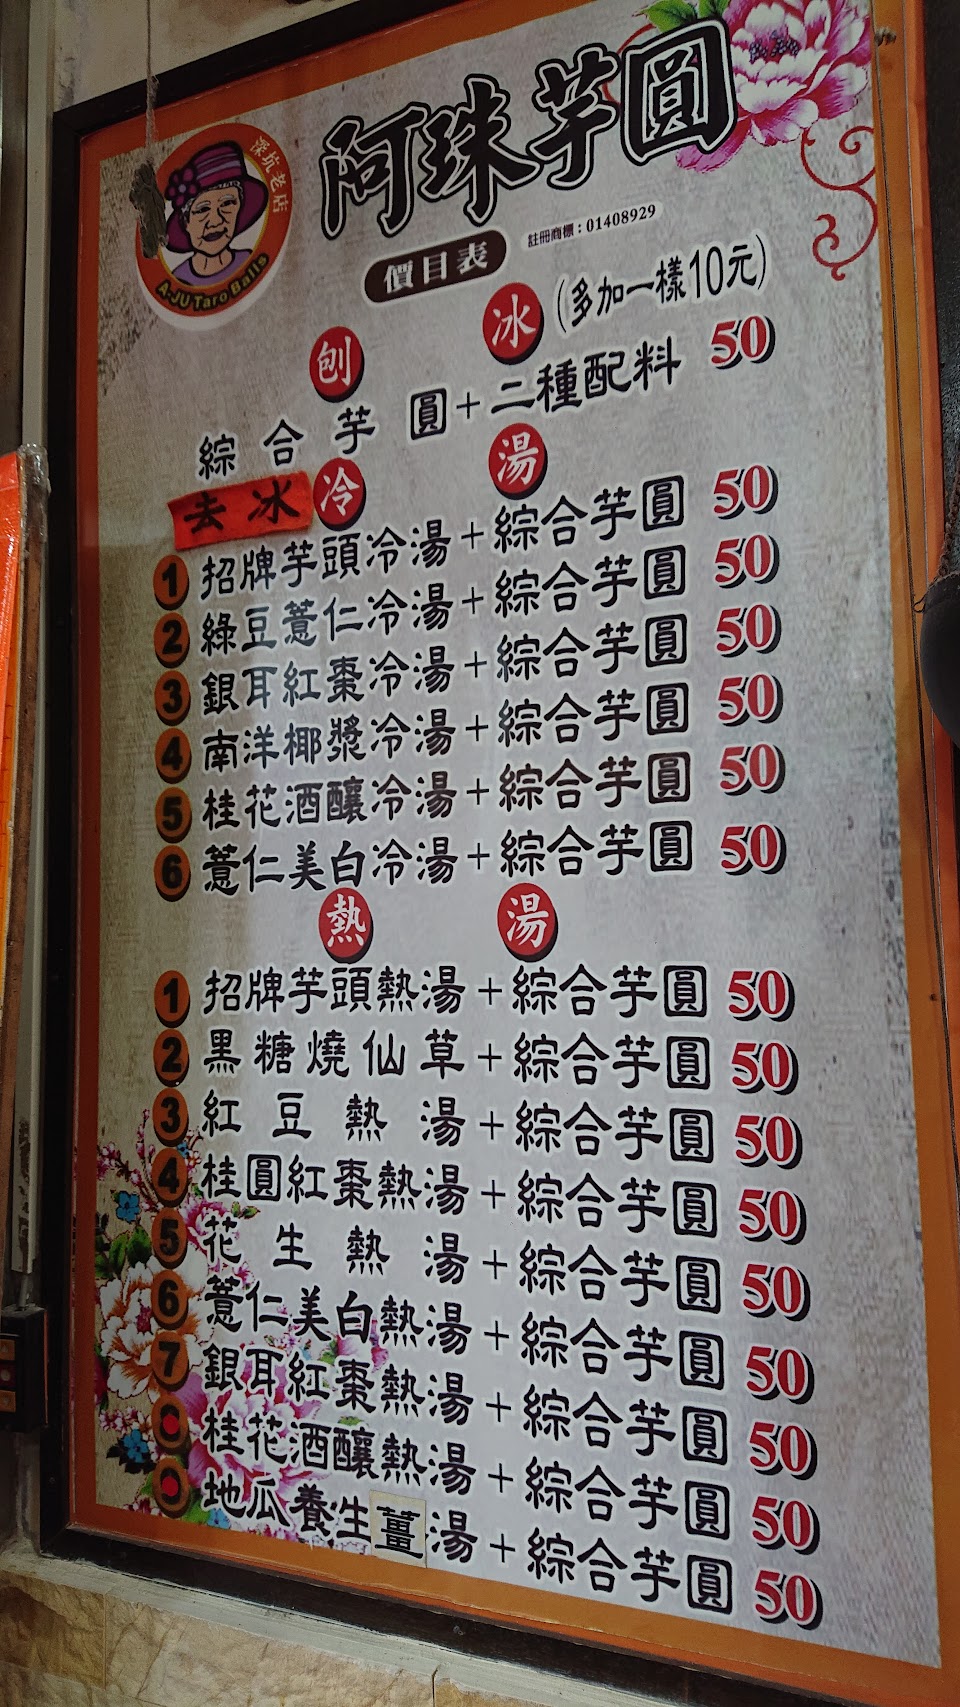 深坑老店
A-JU Taro Balls
阿珠芋圓
註冊商標：01408929
價目表
刨冰(多加一樣10元)
綜合芋圓+二種配料 50
去冰 冷湯
1 招牌芋頭冷湯+綜合芋圓 50
2 綠豆薏仁冷湯+綜合芋圓 50
3 銀耳紅棗冷湯+綜合芋圓 50
4 南洋椰漿冷湯+綜合芋圓 50
5 桂花酒釀冷湯+綜合芋圓 50
6 薏仁美白冷湯+綜合芋圓 50
熱湯
1 招牌芋頭熱湯+綜合芋圓 50
2 黑糖燒仙草+綜合芋圓 50
3 紅豆熱湯+綜合芋圓 50
4 桂圓紅棗熱湯+綜合芋圓 50
5 花生熱湯+綜合芋圓 50
6 薏仁美白熱湯+綜合芋圓 50
7 銀耳紅棗熱湯+綜合芋圓 50
桂花酒釀熱湯+綜合芋圓 50
地瓜養生薑湯+綜合芋圓 50